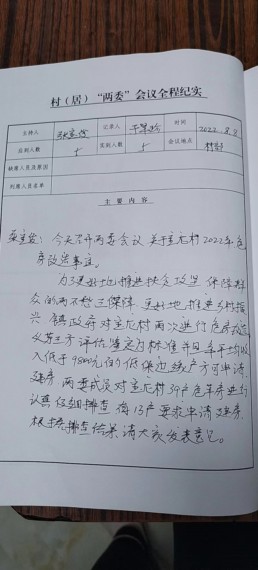 村（居）“两委”会议全程纪实
主持人 记录人 时间 2022.8.8
应到人数 5 实到人数 5 会议地点 村部
缺席人员及原因
列席人员名单
主 要 内 容
今天召开两委会议 关于 村2022年危
房改造事宜。
为了更好地推进扶贫攻坚 保障群
众的两不愁三保障 更好地推进乡村振
兴 镇政府对 村两次进行危房改造
以第三方评估鉴定为标准并且年平均收
入低于9800元的低保边缘户方可申请
建房 两委成员对 村39户危草房进行
认真仔细排查 有13户要求申请建房
根据排查结果请大家发表意见。